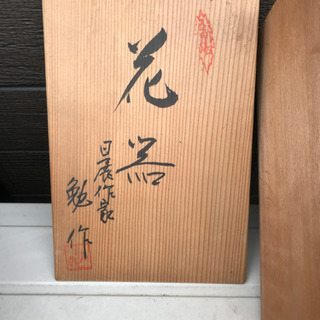 花器
日展作家
勉作